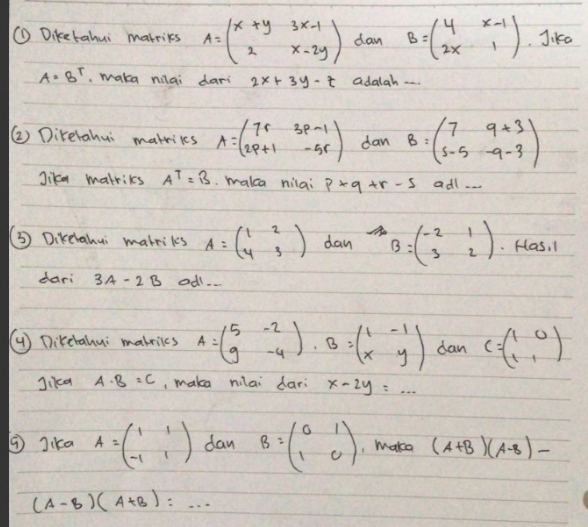 ① Diketahui matriks A = (x+y 3x-1 dan B = (4 x-1 . Jika
2 x-2y) 2x 1)
A = Bᵀ, maka nilai dari 2x + 3y - z adalah ...
② Diketahui matriks A = (7r 3p-1 dan B = (7 q+3
2p+1 -5r) s-5 -q-3)
Jika matriks Aᵀ = B. maka nilai p + q + r - s adl ...
③ Diketahui matriks A = (1 2 dan B = (-2 1 . Hasil
4 3) 3 2)
dari 3A - 2B adl...
④ Diketahui matriks A = (5 -2 , B = (1 -1 dan C = (1 0
9 -4) x y) 1 1)
Jika A·B = C, maka nilai dari x - 2y = ...
⑤ Jika A = (1 1 dan B = (0 1 , maka (A+B)(A-B) -
-1 1) 1 0)
(A-B)(A+B) = ...